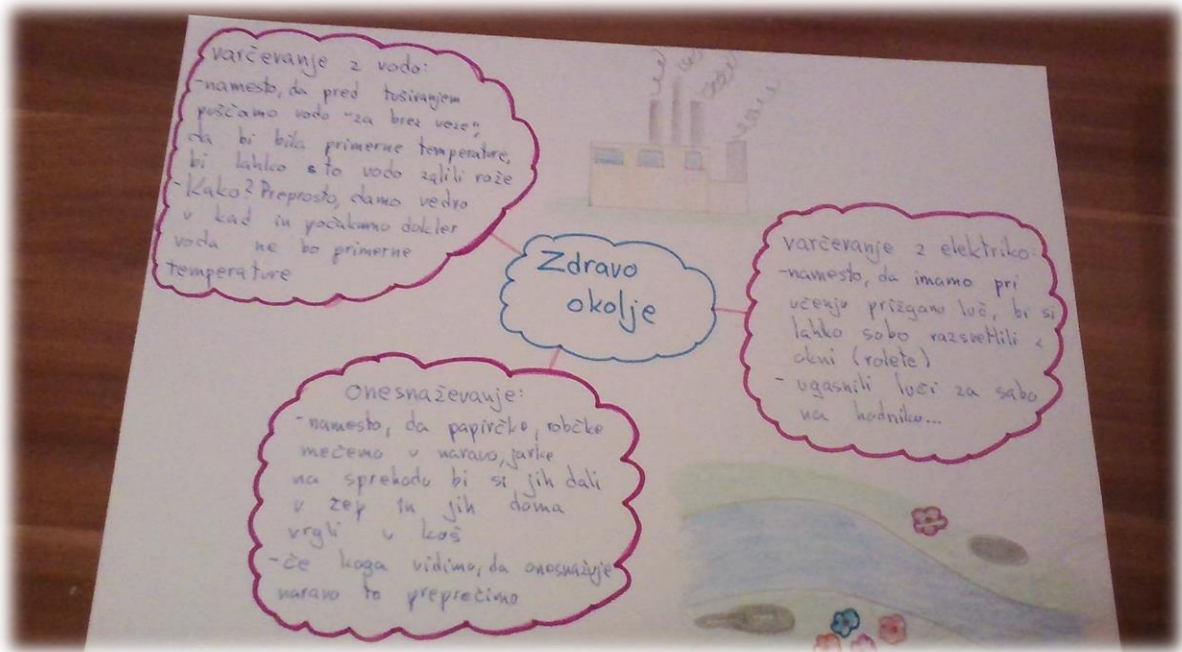 varčevanje z vodo:
-namesto, da pred tuširanjem
puščamo vodo "za brez veze",
da bi bila primerne temperature,
bi lahko s to vodo zalili rože
- Kako? Preprosto, damo vedro
v kad in počakamo dokler
voda ne bo primerne
temperature
Zdravo
okolje
varčevanje z elektriko:
-namesto, da imamo pri
učenju prižgano luč, bi si
lahko sobo razsvetlili z
okni (rolete)
- ugasnili luči za sabo
na hodniku...
onesnaževanje:
-namesto, da papirčke, robčke
mečemo v naravo, jarke
na sprehodu bi si jih dali
v žep in jih doma
vrgli v koš
-če koga vidimo, da onesnažuje
naravo to preprečimo